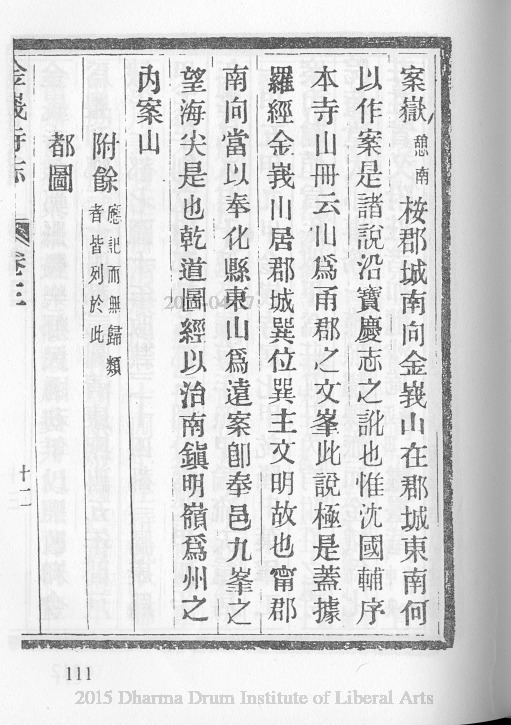 案嶽憩南桉郡城南向金峩山在郡城東南何
以作案是諸說沿寶慶志之訛也惟沈國輔序
本寺山冊云山爲甬郡之文峯此說極是蓋據
羅經金峩山居郡城巽位巽主文明故也甯郡
南向當以奉化縣東山爲遠案卽奉邑九峯之
望海尖是也乾道圖經以治南鎭明嶺爲州之
內案山
附餘應記而無歸類
者皆列於此
都圖
金峩寺志
卷三
十二
111
2015 Dharma Drum Institute of Liberal Arts